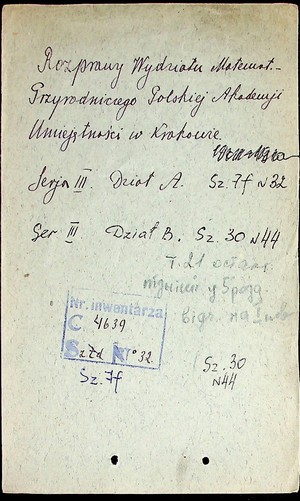 Rozprawy Wydziału Matemat.-
Przyrodniczego Polskiej Akademji
Umiejętności w Krakowie.
Serja III. Dział A. Sz. 7f N 32
Ser III Dział B. Sz. 30 N 44
T. 21
Nr. inwentarza
C 4639
Sz. 7f
Sz. 30
N 44